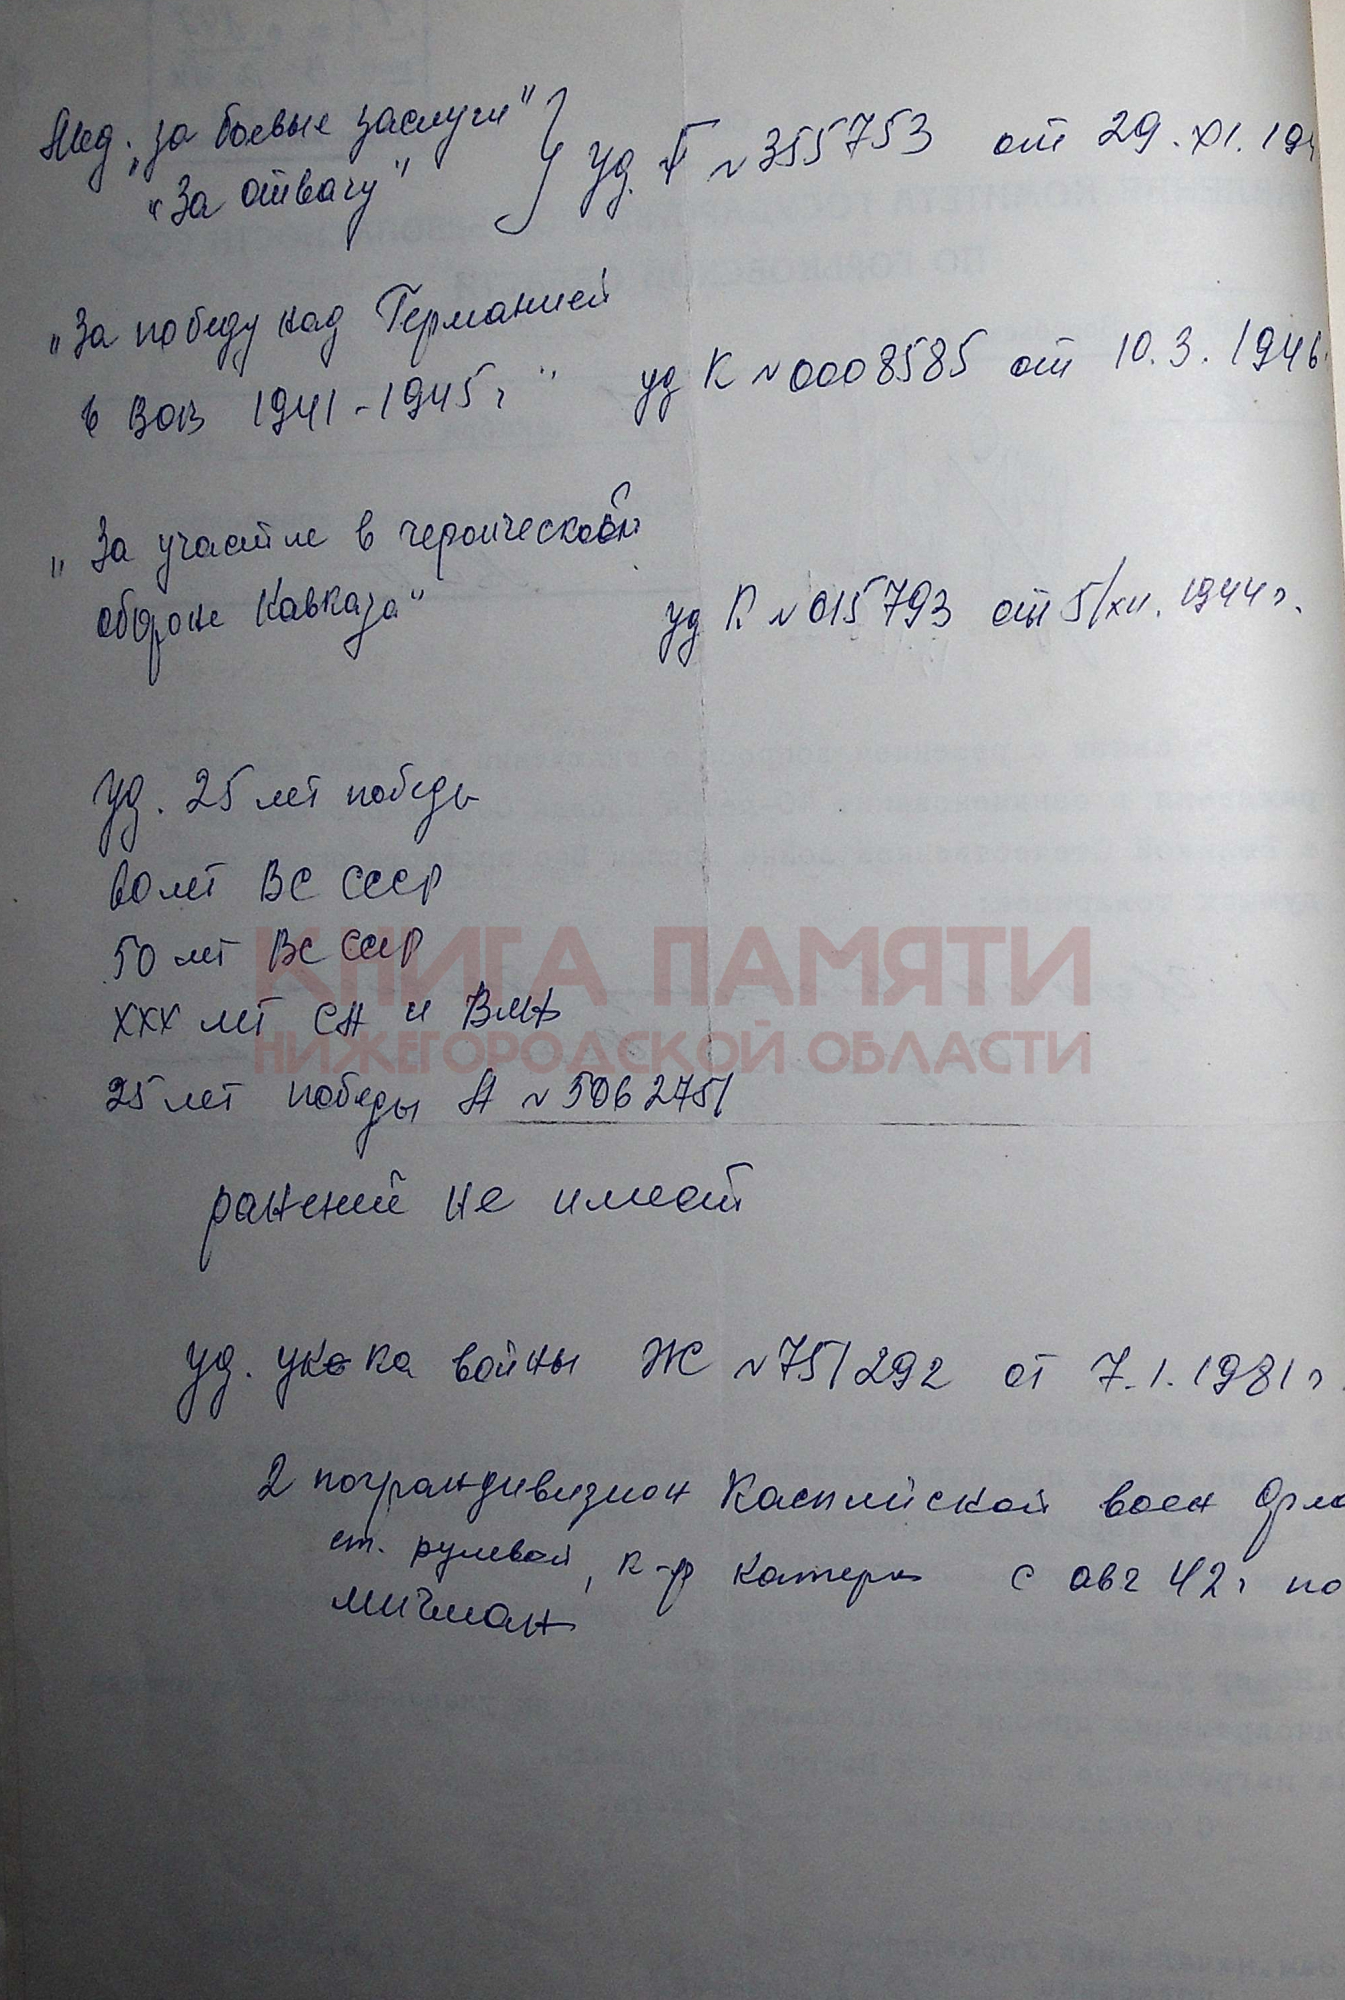 Мед. „за боевые заслуги"
„За отвагу" } уд. Г №355753 от 29.XI.19
„За победу над Германией
в ВОВ 1941-1945г" уд К №0008585 от 10.3.1946
„За участие в героической
обороне Кавказа" уд К №015793 от 5/XII.1944г.
Уд. 25 лет победы
60 лет ВС СССР
50 лет ВС СССР
XXX лет СА и ВМФ
КНИГА ПАМЯТИ
НИЖЕГОРОДСКОЙ ОБЛАСТИ
25 лет победы А №5062751
ранений не имеет
уд. ука войны Ж №751292 от 7.1.1981г.
2 погранд­ивизион Каспийской воен
ст. рулевой, к-р катера с авг 42г по
мичман